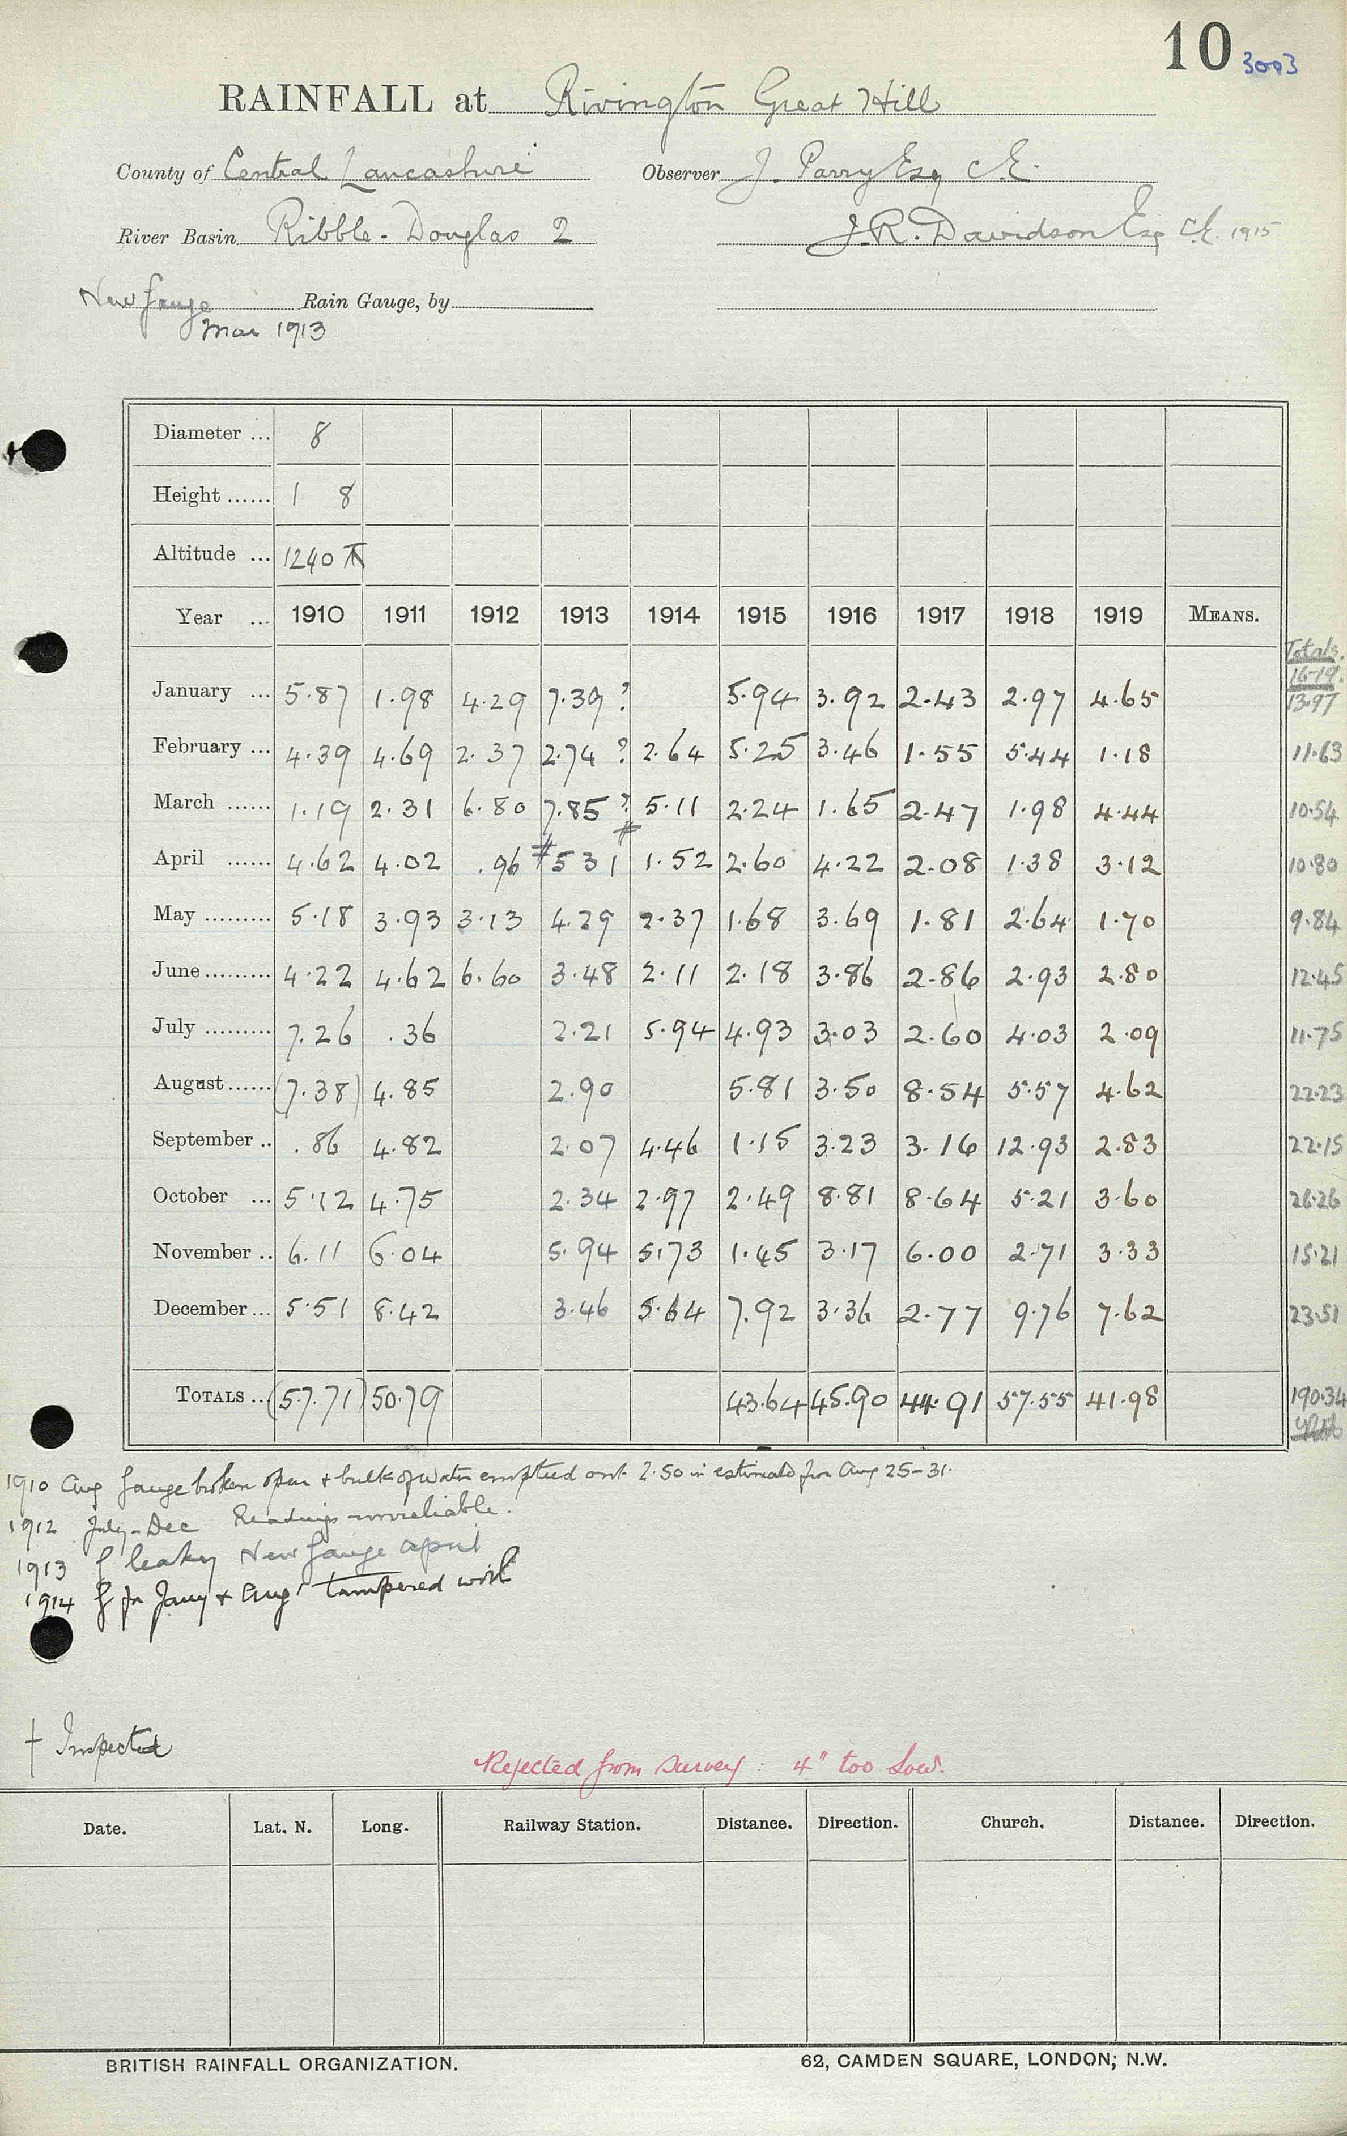 10 3003
RAINFALL at Rivington Great Hill
County of Central Lancashire Observer J. Parry Esq C.E.
River Basin Ribble - Douglas 2 J. R. Davidson Esq C.E. 1915
New Gauge Rain Gauge, by
Mar 1913
Diameter ... 8
Height ...... 1 8
Altitude ... 1240
Year ... 1910 1911 1912 1913 1914 1915 1916 1917 1918 1919 MEANS. Totals.
16-19.
January ... 5.87 1.98 4.29 7.39 ? 5.94 3.92 2.43 2.97 4.65 13.97
February ... 4.39 4.69 2.37 2.74 ? 2.64 5.25 3.46 1.55 5.44 1.18 11.63
March ...... 1.19 2.31 6.80 7.85 ? 5.11 2.24 1.65 2.47 1.98 4.44 10.54
April ...... 4.62 4.02 .96 # 5 31 1.52 2.60 4.22 2.08 1.38 3.12 10.80
May ......... 5.18 3.93 3.13 4.29 2.37 1.68 3.69 1.81 2.64 1.70 9.84
June ......... 4.22 4.62 6.60 3.48 2.11 2.18 3.86 2.86 2.93 2.80 12.45
July ......... 7.26 .36 2.21 5.94 4.93 3.03 2.60 4.03 2.09 11.75
August ...... (7.38) 4.85 2.90 5.81 3.50 8.54 5.57 4.62 22.23
September .. .86 4.82 2.07 4.46 1.15 3.23 3.16 12.93 2.83 22.15
October ... 5.12 4.75 2.34 2.97 2.49 8.81 8.64 5.21 3.60 26.26
November .. 6.11 6.04 5.94 5.73 1.45 3.17 6.00 2.71 3.33 15.21
December ... 5.51 8.42 3.46 5.64 7.92 3.36 2.77 9.76 7.62 23.51
TOTALS .. (57.71) 50.79 43.64 45.90 44.91 57.55 41.98 190.34
1910 Aug Gauge broken open + bulk of water emptied out. 2.50 in estimated for Aug 25-31.
1912 July - Dec Readings unreliable.
1913 G leaky New Gauge April
1914 G for Jany + Aug tampered with
† Inspected
Rejected from survey : 4" too low.
Date. Lat. N. Long. Railway Station. Distance. Direction. Church. Distance. Direction.
BRITISH RAINFALL ORGANIZATION. 62, CAMDEN SQUARE, LONDON, N.W.